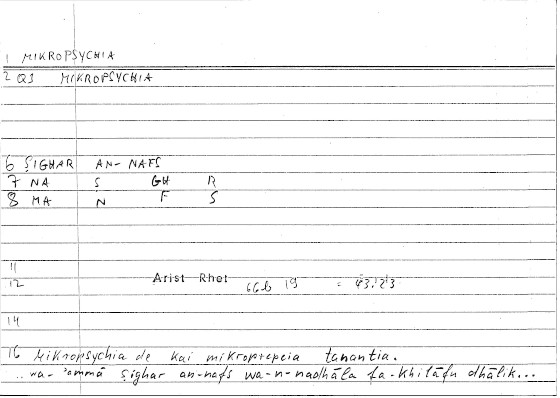 1 MIKROPSYCHIA
2 Q3 MIKROPSYCHIA
6 ṢIGHAR AN-NAFS
7 NA Ṣ GH R
8 MA N F S
11
12 Arist Rhet 66b 19 = 43.23
14
16 Mikropsychia de kai mikroprepeia tanantia.
..wa-'ammā ṣighar an-nafs wa-n-nadhāla fa-khilāfu dhālik...